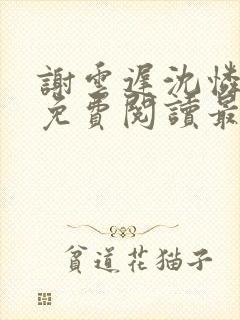 謝雲遲沈憐
免費閱讀最
貧道花猫子